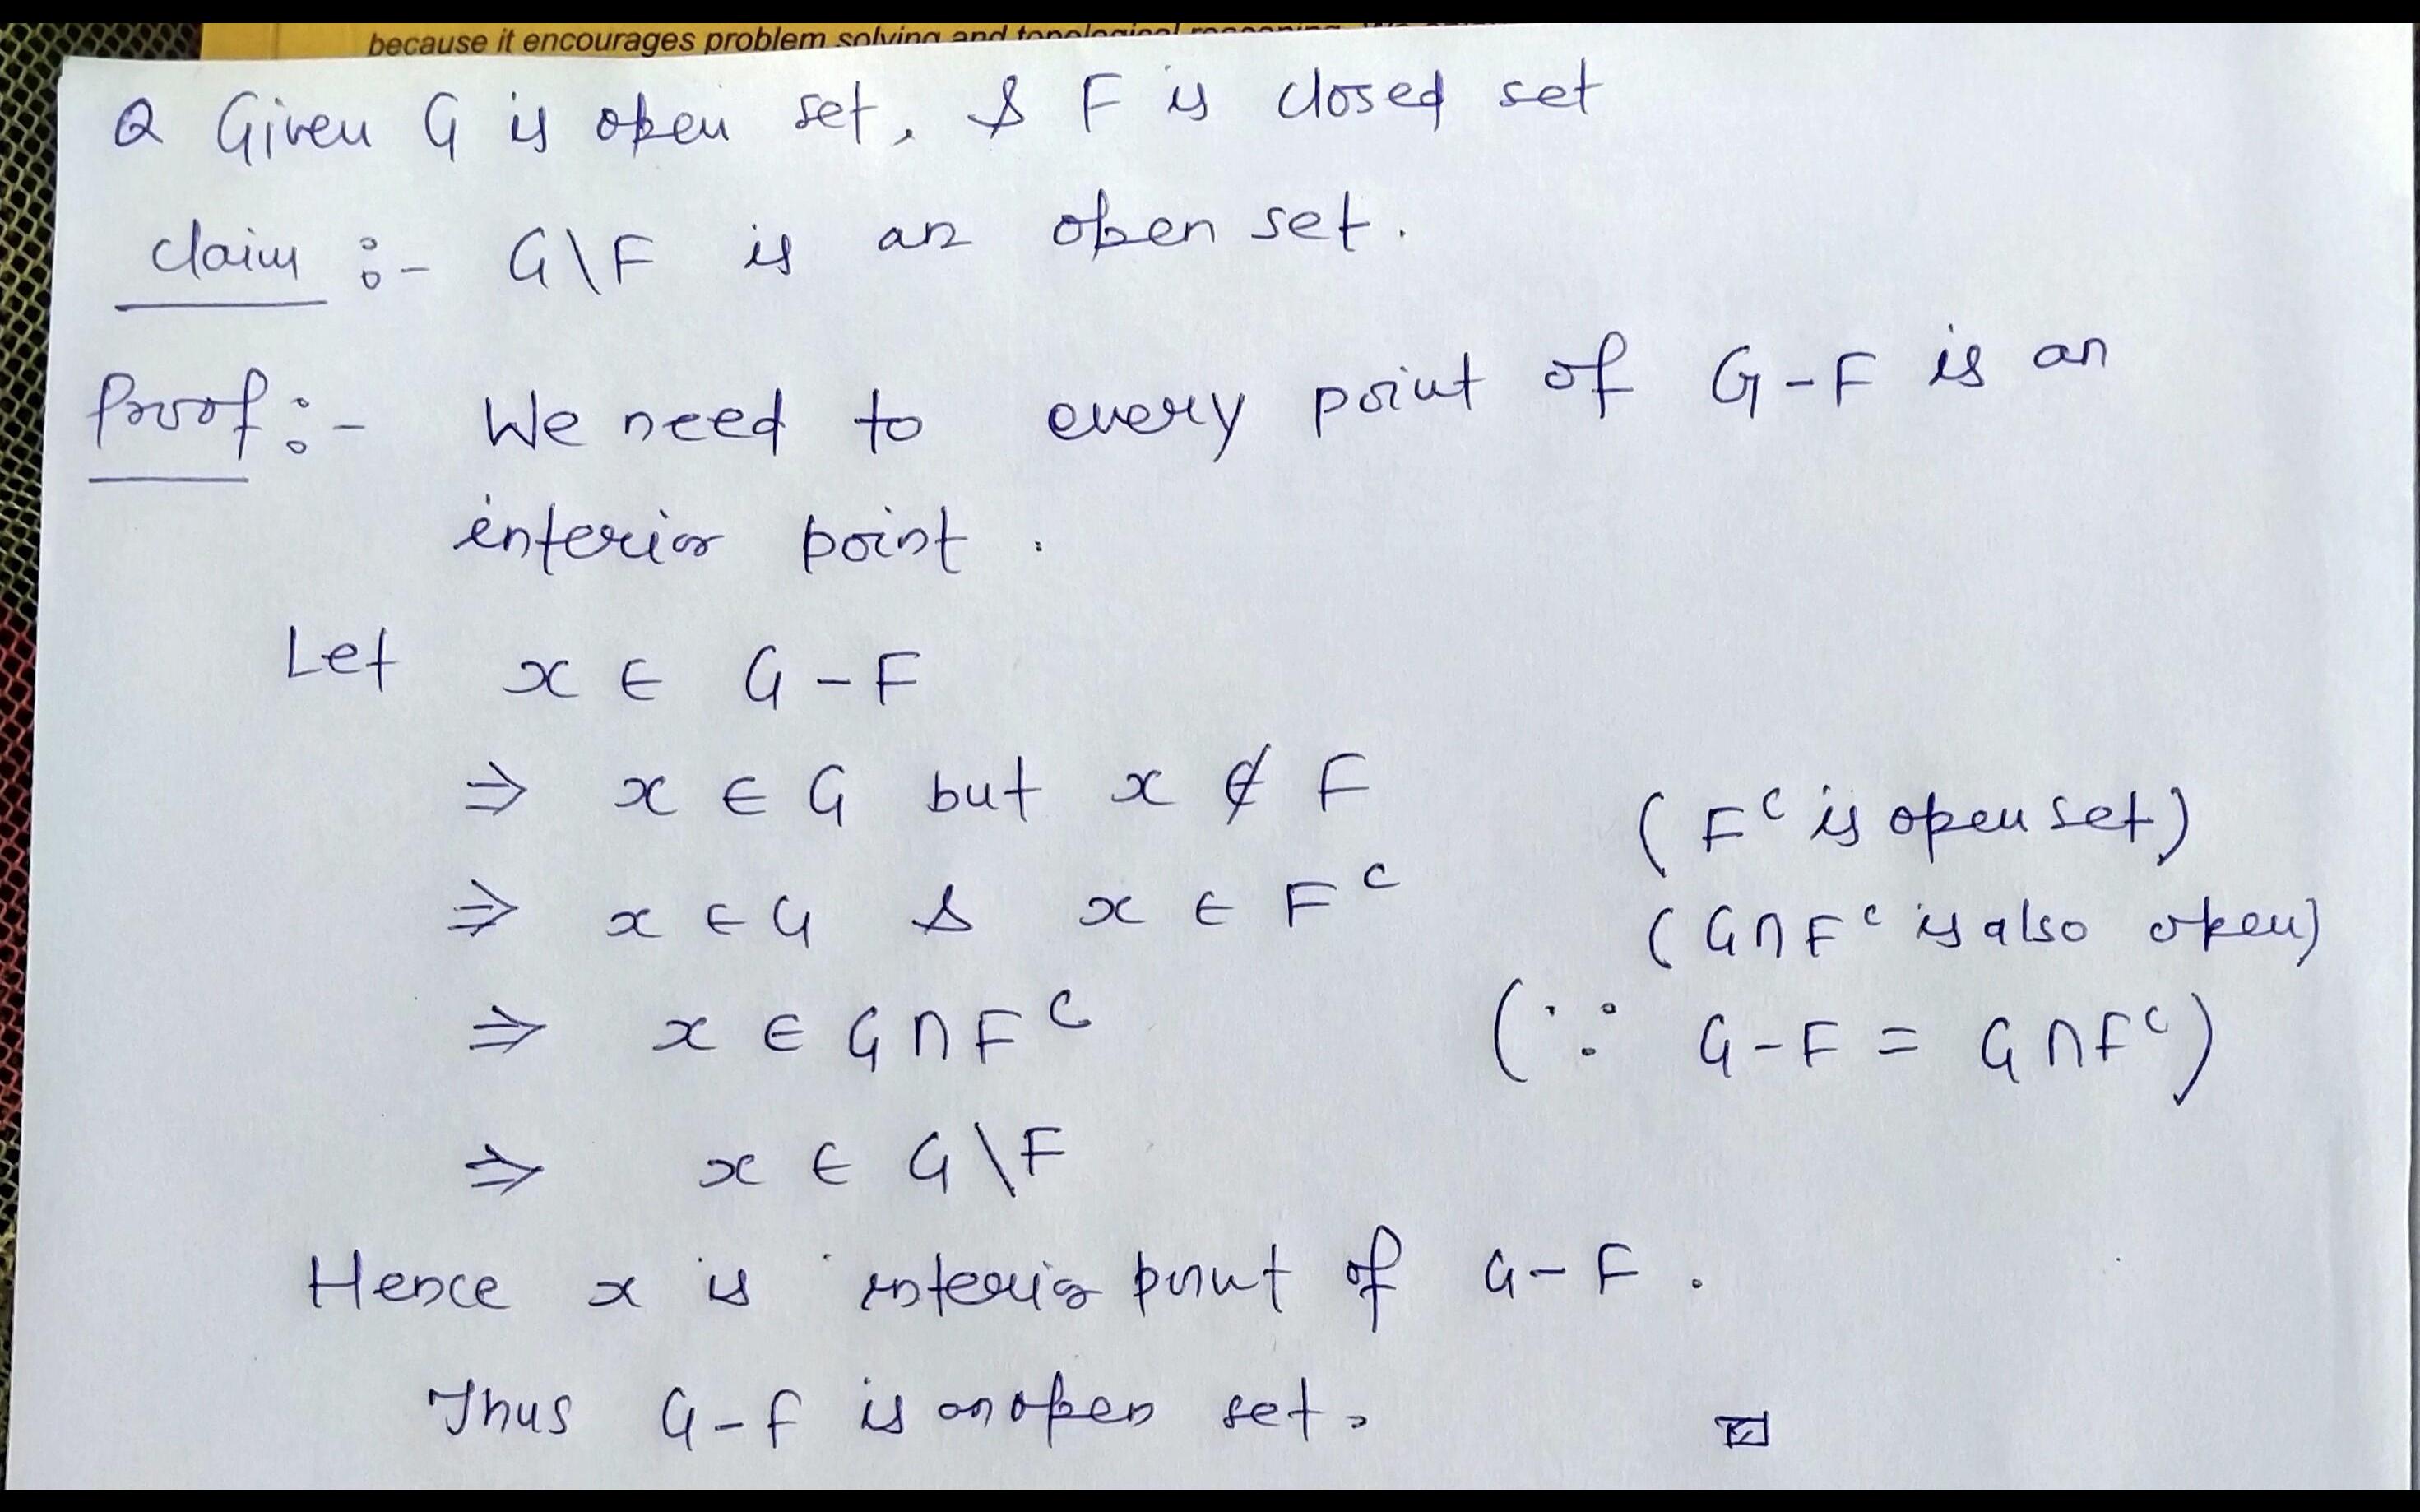 because it encourages problem solving and topological reasoning. We
Q Given G is open set, & F is closed set
Claim :- G\F is an open set.
Proof :- We need to every point of G-F is an
interior point.
Let x ∈ G-F
⇒ x ∈ G but x ∉ F
(Fᶜ is open set)
⇒ x ∈ G & x ∈ Fᶜ
(G∩Fᶜ is also open)
⇒ x ∈ G∩Fᶜ (∵ G-F = G∩Fᶜ)
⇒ x ∈ G\F
Hence x is interior point of G-F.
Thus G-F is an open set.